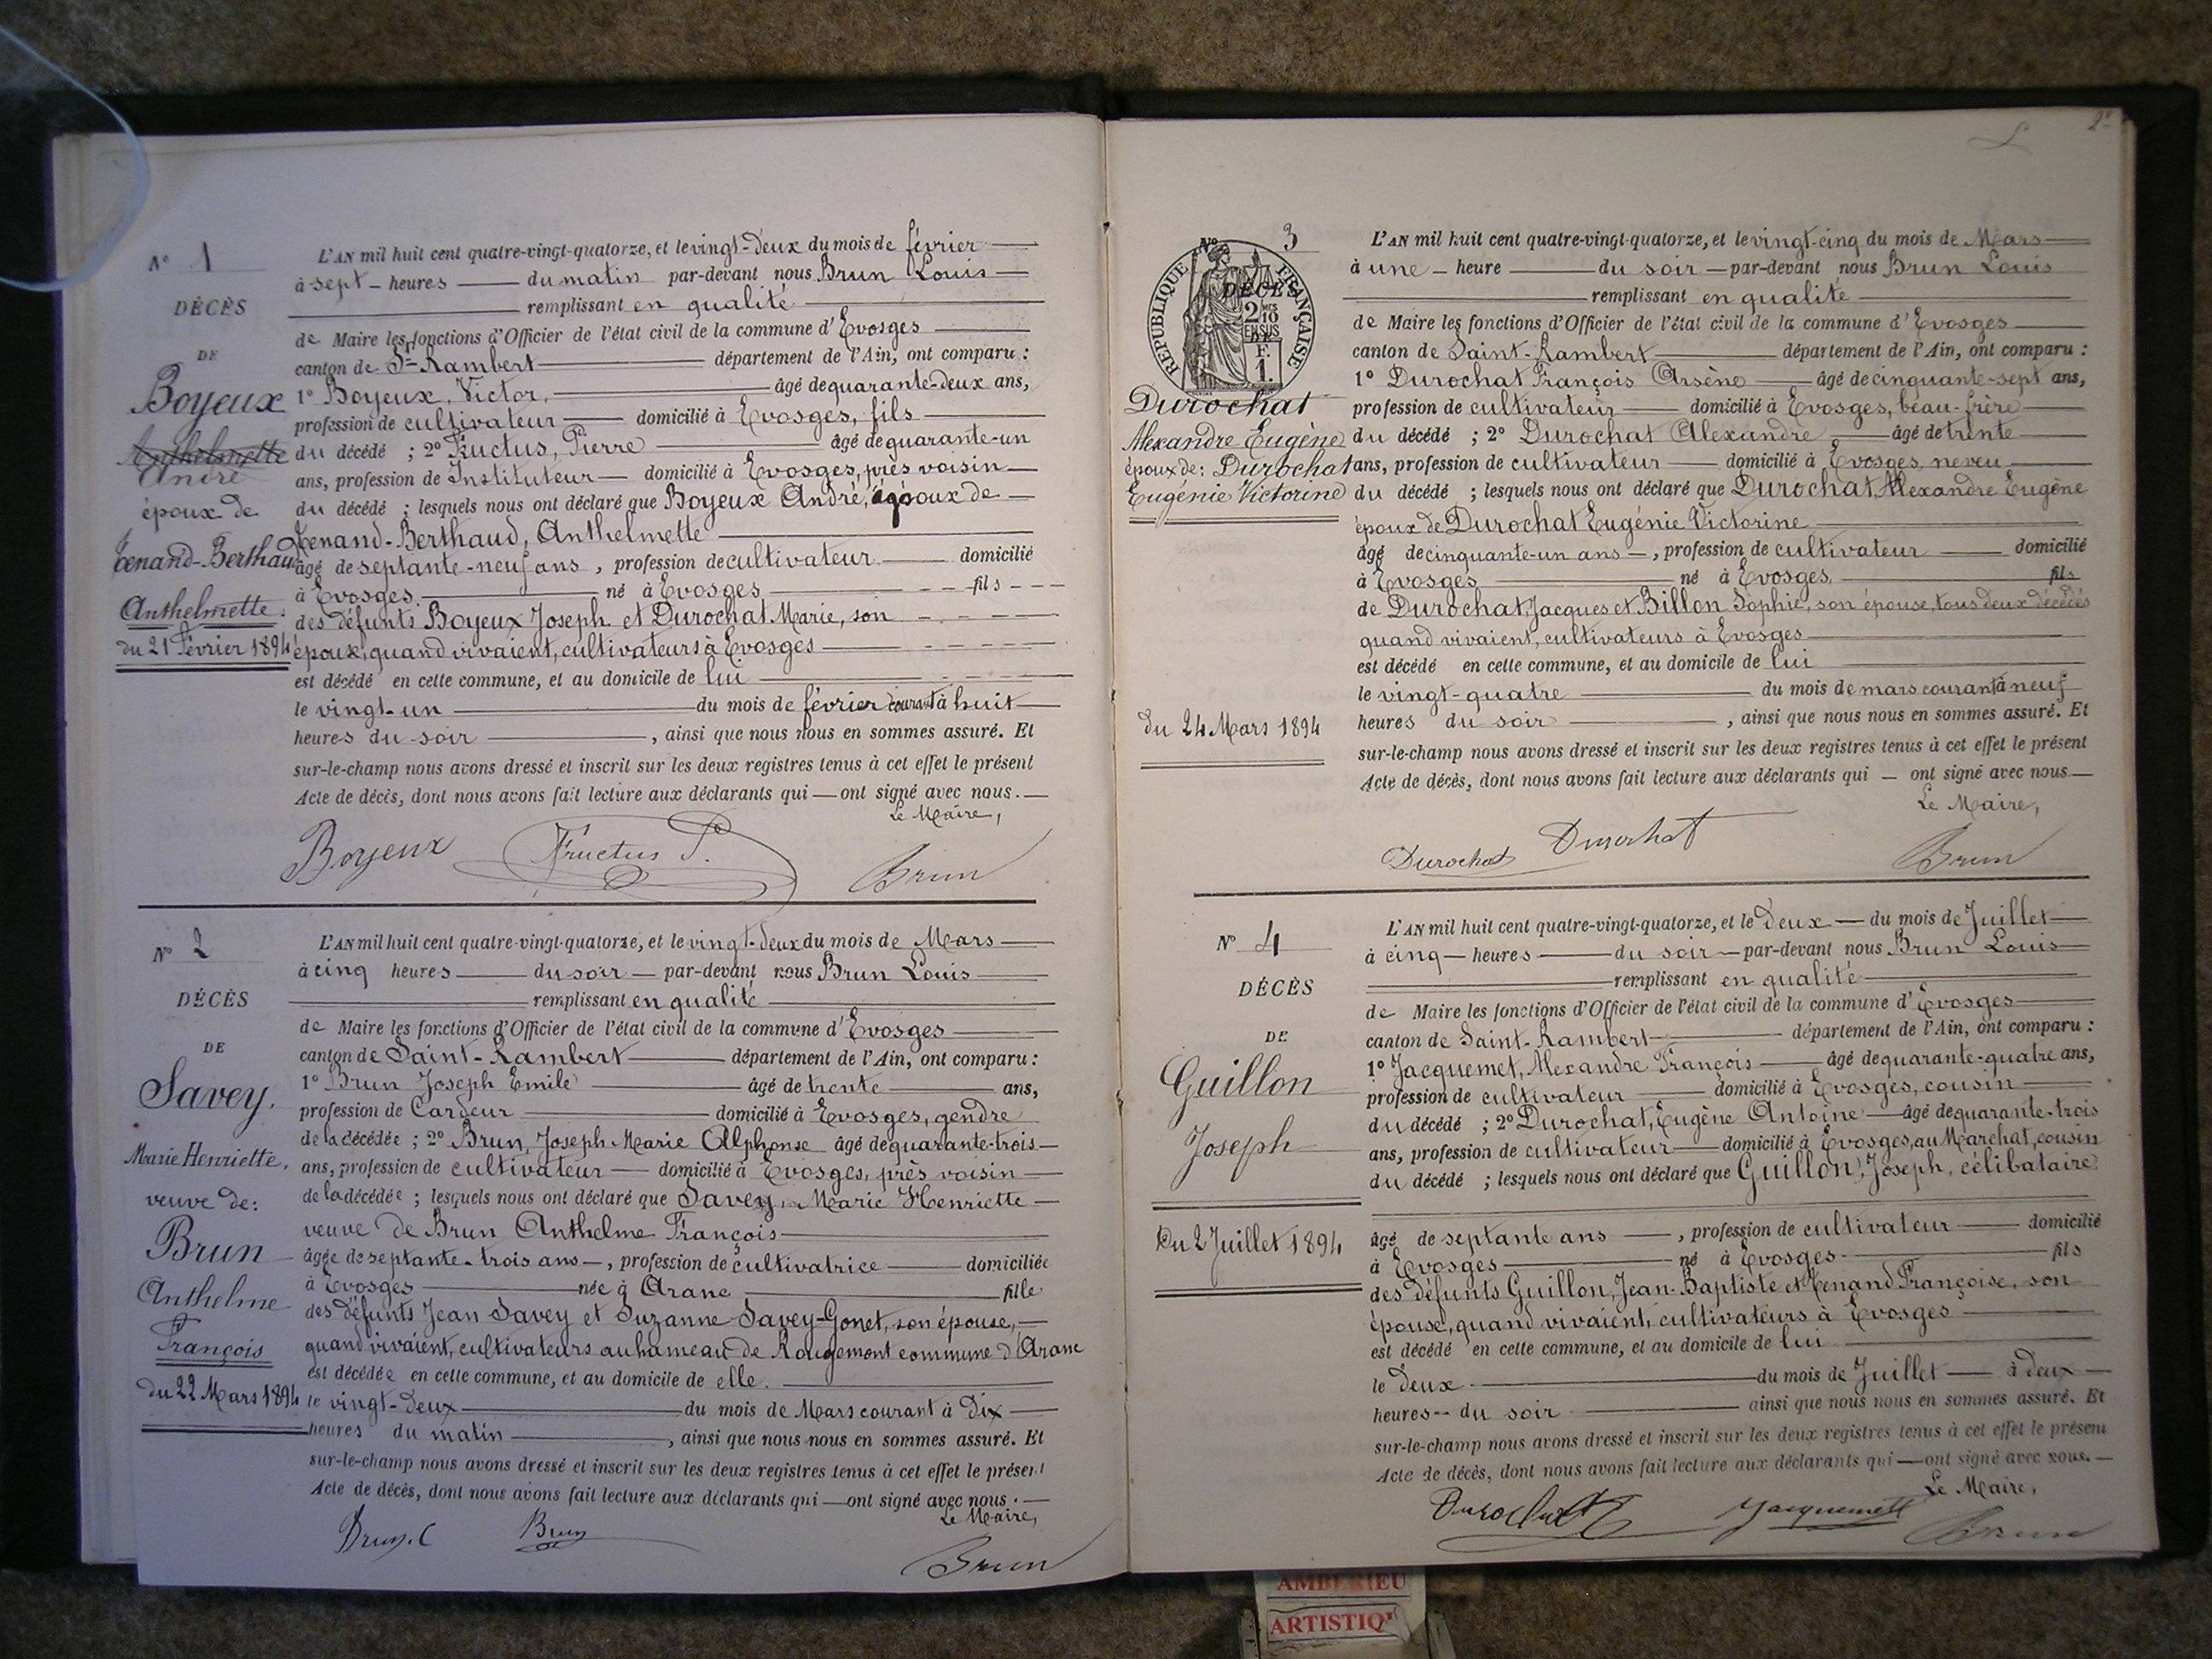 N° 1
DÉCÈS
DE
Boyeux
Anthelmette
André
époux de
Tenand-Berthaud
Anthelmette.
du 21 Février 1894
L'AN mil huit cent quatre-vingt-quatorze, et le vingt-deux du mois de février
à sept heures du matin par-devant nous Brun Louis
remplissant en qualité
de Maire les fonctions d'Officier de l'état civil de la commune d'Evosges
canton de St-Rambert département de l'Ain, ont comparu :
1° Boyeux, Victor, âgé de quarante-deux ans,
profession de cultivateur domicilié à Evosges, fils
du décédé ; 2° Fructus, Pierre âgé de quarante-un
ans, profession de Instituteur domicilié à Evosges, près voisin
du décédé ; lesquels nous ont déclaré que Boyeux André, époux de
Tenand-Berthaud, Anthelmette
âgé de septante-neuf ans, profession de cultivateur domicilié
à Evosges né à Evosges fils
des défunts Boyeux Joseph et Durochat Marie, son
époux, quand vivaient, cultivateurs à Evosges
est décédé en cette commune, et au domicile de lui
le vingt-un du mois de février courant à huit
heures du soir , ainsi que nous nous en sommes assuré. Et
sur-le-champ nous avons dressé et inscrit sur les deux registres tenus à cet effet le présent
Acte de décès, dont nous avons fait lecture aux déclarants qui ont signé avec nous.
Le Maire,
Boyeux Fructus P. Brun
N° 2
DÉCÈS
DE
Savey,
Marie Henriette,
veuve de:
Brun
Anthelme
François
du 22 Mars 1894
L'AN mil huit cent quatre-vingt-quatorze, et le vingt-deux du mois de Mars
à cinq heures du soir par-devant nous Brun Louis
remplissant en qualité
de Maire les fonctions d'Officier de l'état civil de la commune d'Evosges
canton de Saint-Rambert département de l'Ain, ont comparu :
1° Brun Joseph Emile âgé de trente ans,
profession de Cardeur domicilié à Evosges, gendre
de la décédée ; 2° Brun, Joseph Marie Alphonse âgé de quarante-trois
ans, profession de cultivateur domicilié à Evosges, près voisin
de la décédée ; lesquels nous ont déclaré que Savey, Marie Henriette
veuve de Brun Anthelme François
âgée de septante-trois ans, profession de cultivatrice domiciliée
à Evosges née à Aranc fille
des défunts Jean Savey et Suzanne Savey-Gonet, son épouse,
quand vivaient, cultivateurs au hameau de Rougemont commune d'Aranc
est décédée en cette commune, et au domicile de elle.
le vingt-deux du mois de Mars courant à dix
heures du matin , ainsi que nous nous en sommes assuré. Et
sur-le-champ nous avons dressé et inscrit sur les deux registres tenus à cet effet le présent
Acte de décès, dont nous avons fait lecture aux déclarants qui ont signé avec nous.
Le Maire,
Brun Brun
2
N° 3
RÉPUBLIQUE FRANÇAISE
DÉCÈS
2/10 EN SUS
F.
1.
Durochat
Alexandre Eugène
époux de: Durochat
Eugénie Victorine
du 24 Mars 1894
L'AN mil huit cent quatre-vingt-quatorze, et le vingt-cinq du mois de Mars
à une heure du soir par-devant nous Brun Louis
remplissant en qualité
de Maire les fonctions d'Officier de l'état civil de la commune d'Evosges
canton de Saint-Rambert département de l'Ain, ont comparu :
1° Durochat François Arsène âgé de cinquante-sept ans,
profession de cultivateur domicilié à Evosges, beau-frère
du décédé ; 2° Durochat Alexandre âgé de trente
ans, profession de cultivateur domicilié à Evosges, neveu
du décédé ; lesquels nous ont déclaré que Durochat, Alexandre Eugène
époux de Durochat Eugénie Victorine
âgé de cinquante-un ans, profession de cultivateur domicilié
à Evosges né à Evosges, fils
de Durochat, Jacques et Billon Sophie, son épouse, tous deux décédés
quand vivaient, cultivateurs à Evosges
est décédé en cette commune, et au domicile de lui
le vingt-quatre du mois de mars courant à neuf
heures du soir , ainsi que nous nous en sommes assuré. Et
sur-le-champ nous avons dressé et inscrit sur les deux registres tenus à cet effet le présent
Acte de décès, dont nous avons fait lecture aux déclarants qui ont signé avec nous
Le Maire,
Durochat Durochat Brun
N° 4
DÉCÈS
DE
Guillon
Joseph
Du 2 Juillet 1894
L'AN mil huit cent quatre-vingt-quatorze, et le deux du mois de Juillet
à cinq heures du soir par-devant nous Brun Louis
remplissant en qualité
de Maire les fonctions d'Officier de l'état civil de la commune d'Evosges
canton de Saint-Rambert département de l'Ain, ont comparu :
1° Jacquemet, Alexandre François âgé de quarante-quatre ans,
profession de cultivateur domicilié à Evosges, cousin
du décédé ; 2° Durochat, Eugène Antoine âgé de quarante-trois
ans, profession de cultivateur domicilié à Evosges, au Marchat, cousin
du décédé ; lesquels nous ont déclaré que Guillon, Joseph, célibataire
âgé de septante ans , profession de cultivateur domicilié
à Evosges né à Evosges fils
des défunts Guillon, Jean-Baptiste et Tenand Françoise, son
épouse, quand vivaient, cultivateurs à Evosges
est décédé en cette commune, et au domicile de lui
le deux du mois de Juillet à deux
heures du soir ainsi que nous nous en sommes assuré. Et
sur-le-champ nous avons dressé et inscrit sur les deux registres tenus à cet effet le présent
Acte de décès, dont nous avons fait lecture aux déclarants qui ont signé avec nous.
Le Maire,
Durochat Jacquemet Brun
AMBERIEU
ARTISTIQ